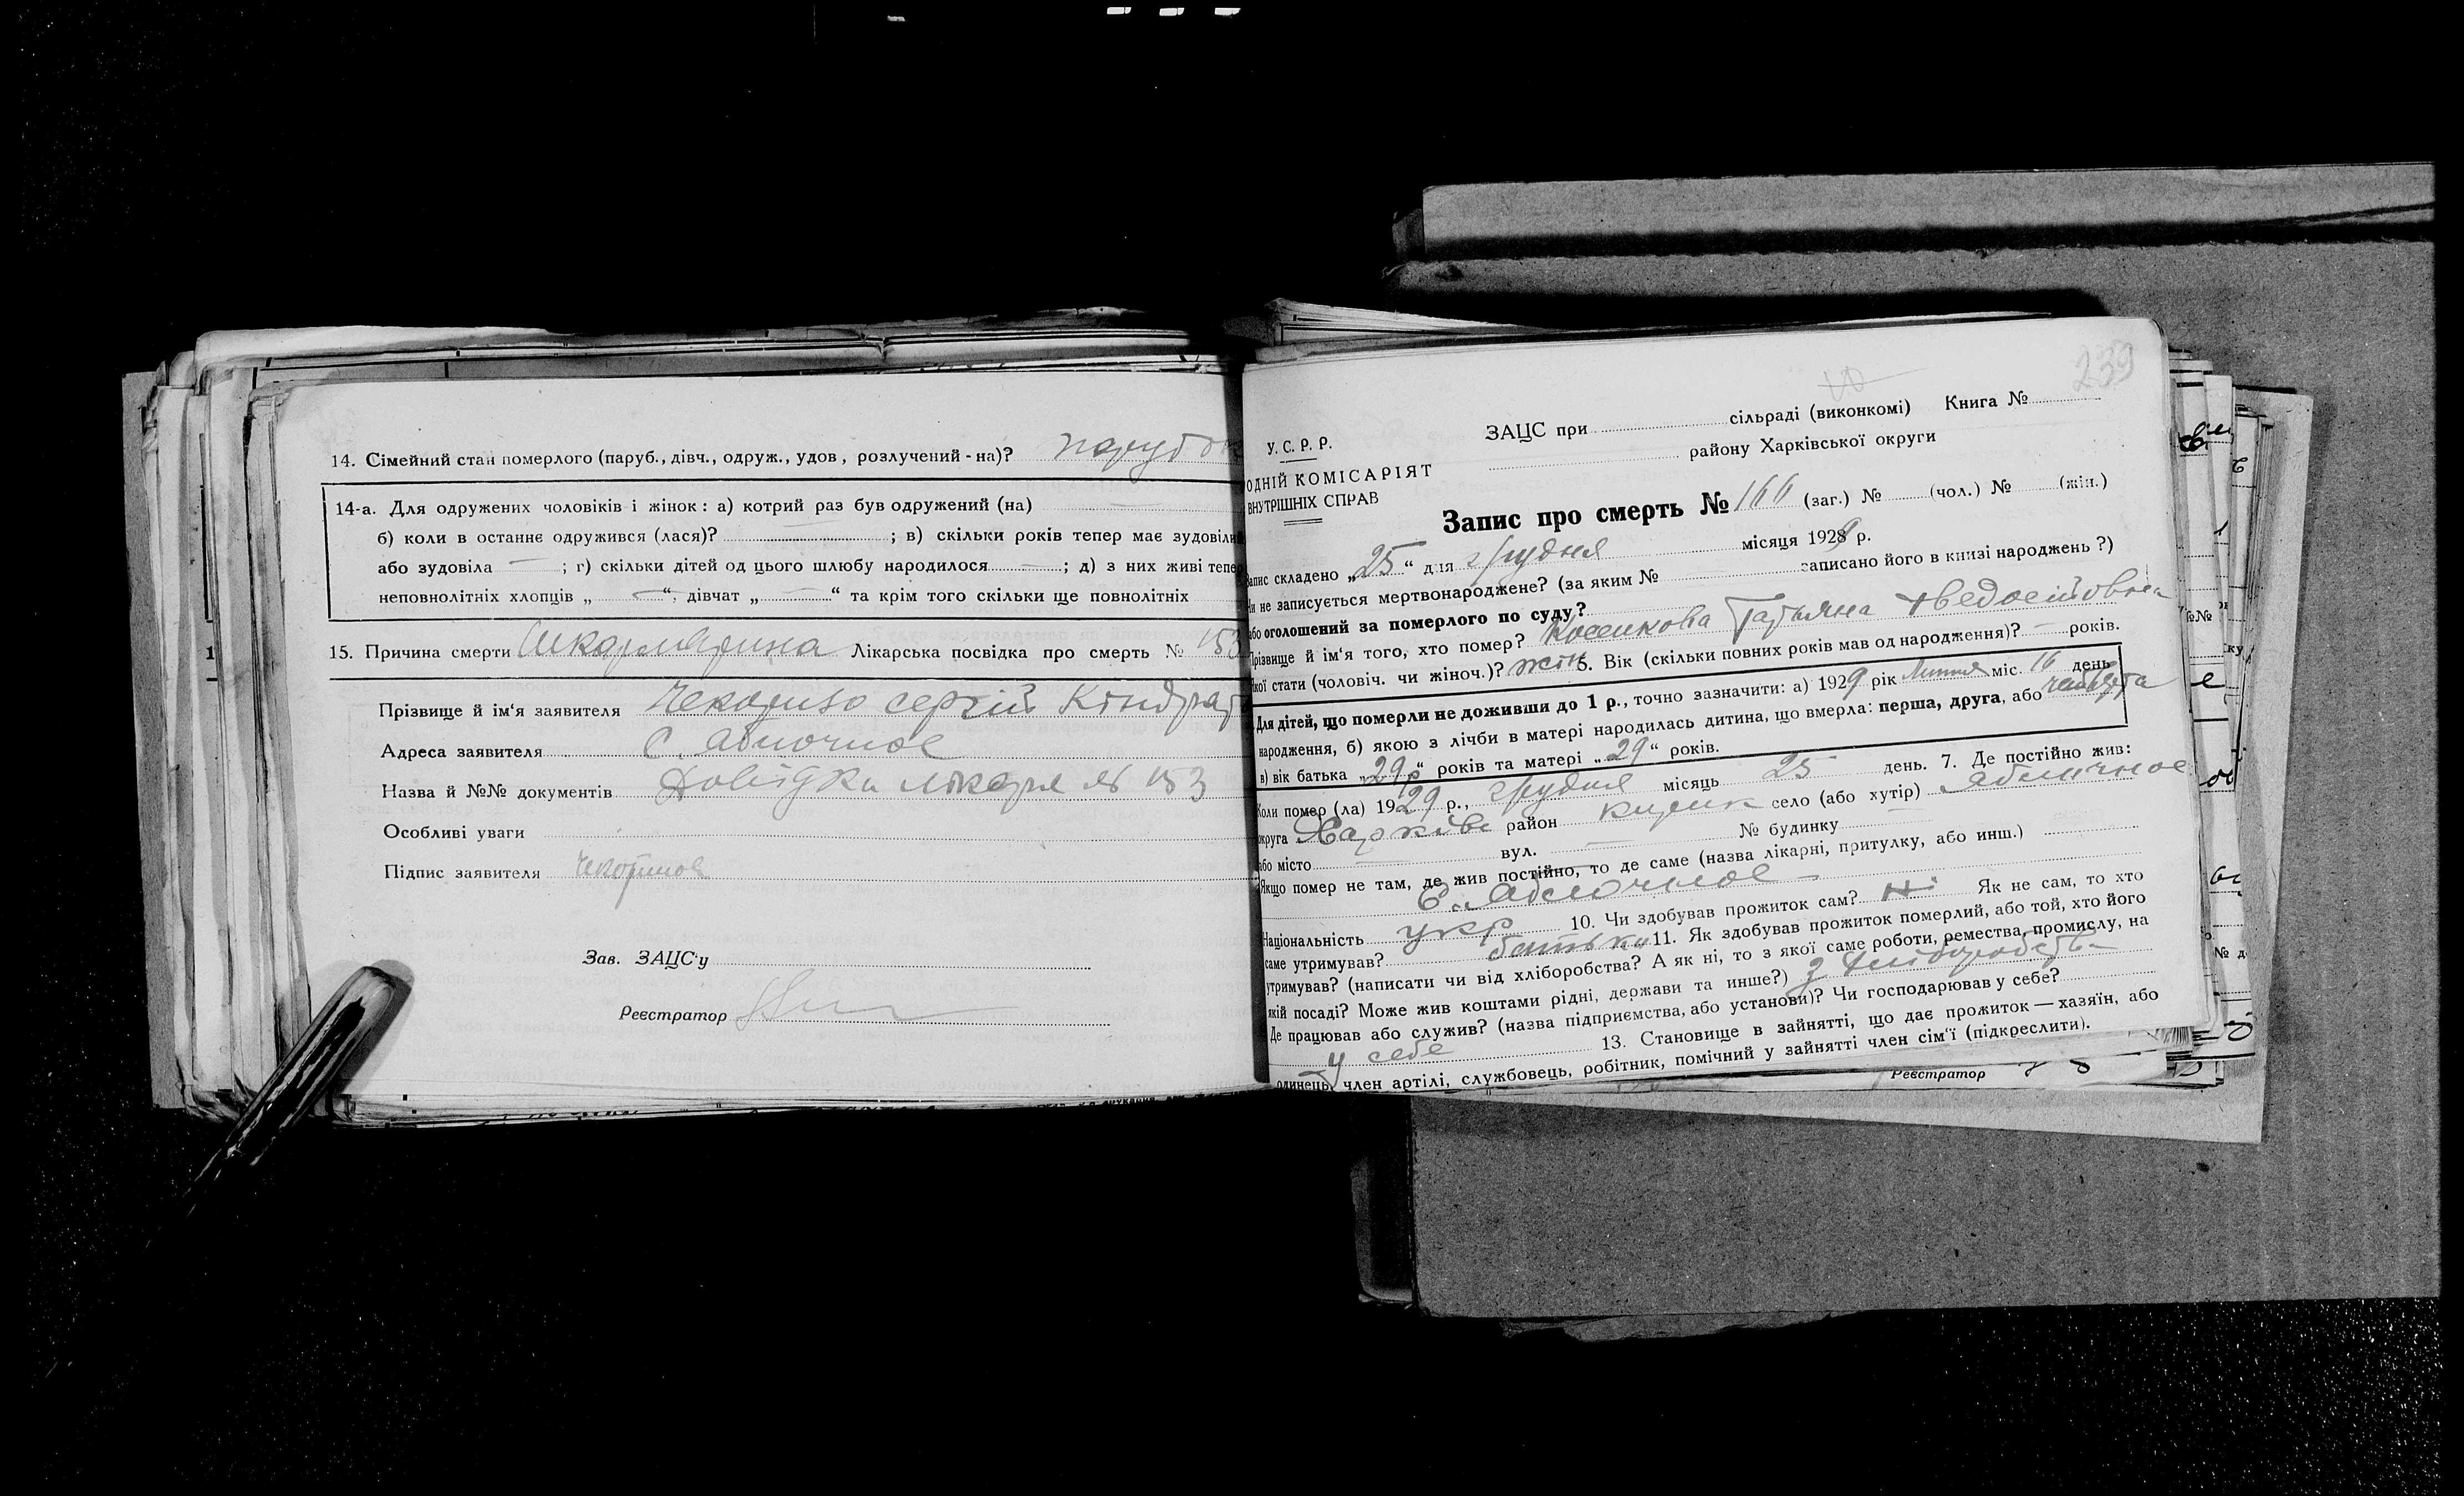 14. Сімейний стан померлого (паруб., дівч., одруж., удов., розлучений-на)? парубок
14-а. Для одружених чоловіків і жінок: а) котрий раз був одружений (на)
б) коли в останнє одружився (лася)? ; в) скільки років тепер має зудовілий
або зудовіла — ; г) скільки дітей од цього шлюбу народилося — ; д) з них живі тепер
неповнолітніх хлопців „ — “, дівчат „ — “ та крім того скільки ще повнолітніх
15. Причина смерти Шкарлятина Лікарська посвідка про смерть № 153
Прізвище й ім'я заявителя сергій Кіндрат
Адреса заявителя С. Яблочное
Назва й №№ документів Довідка лікаря № 153
Особливі уваги
Підпис заявителя
Зав. ЗАЦС'у
Реєстратор
239
У.С.Р.Р.
ЗАЦС при сільраді (виконкомі) Книга №
району Харківської округи
ОДНІЙ КОМІСАРІЯТ
ВНУТРІШНІХ СПРАВ
Запис про смерть № 166 (заг.) № (чол.) № (жін.)
Запис складено „25“ дня грудня місяця 1929 р.
Чи не записується мертвонароджене? (за яким № записано його в книзі народжень?)
або оголошений за померлого по суду?
Прізвище й ім'я того, хто помер? Косенкова Татьяна Хведосійовна
Якої стати (чоловіч. чи жіноч.)? жін 5. Вік (скільки повних років мав од народження)? — років.
Для дітей, що померли не доживши до 1 р., точно зазначити: а) 1929 рік Липня міс. 16 день
народження, б) якою з лічби в матері народилась дитина, що вмерла: перша, друга, або четверта
в) вік батька „29 р“ років та матері „29“ років.
Коли помер (ла) 1929 р., грудня місяць 25 день. 7. Де постійно жив:
округа Харківс район село (або хутір) Яблучное
або місто — вул. — № будинку
Якщо помер не там, де жив постійно, то де саме (назва лікарні, притулку, або инш.)
С. Яблочное
Національність укр 10. Чи здобував прожиток сам? Ні Як не сам, то хто
саме утримував? батьки 11. Як здобував прожиток померлий, або той, хто його
утримував? (написати чи від хліборобства? А як ні, то з якої саме роботи, ремества, промислу, на
якій посаді? Може жив коштами рідні, держави та инше?) з хліборобства
Де працював або служив? (назва підприємства, або установи)? Чи господарював у себе?
у себе 13. Становище в зайнятті, що дає прожиток — хазяїн, або
одинець, член артілі, службовець, робітник, помічний у зайнятті член сім'ї (підкреслити).
Реєстратор